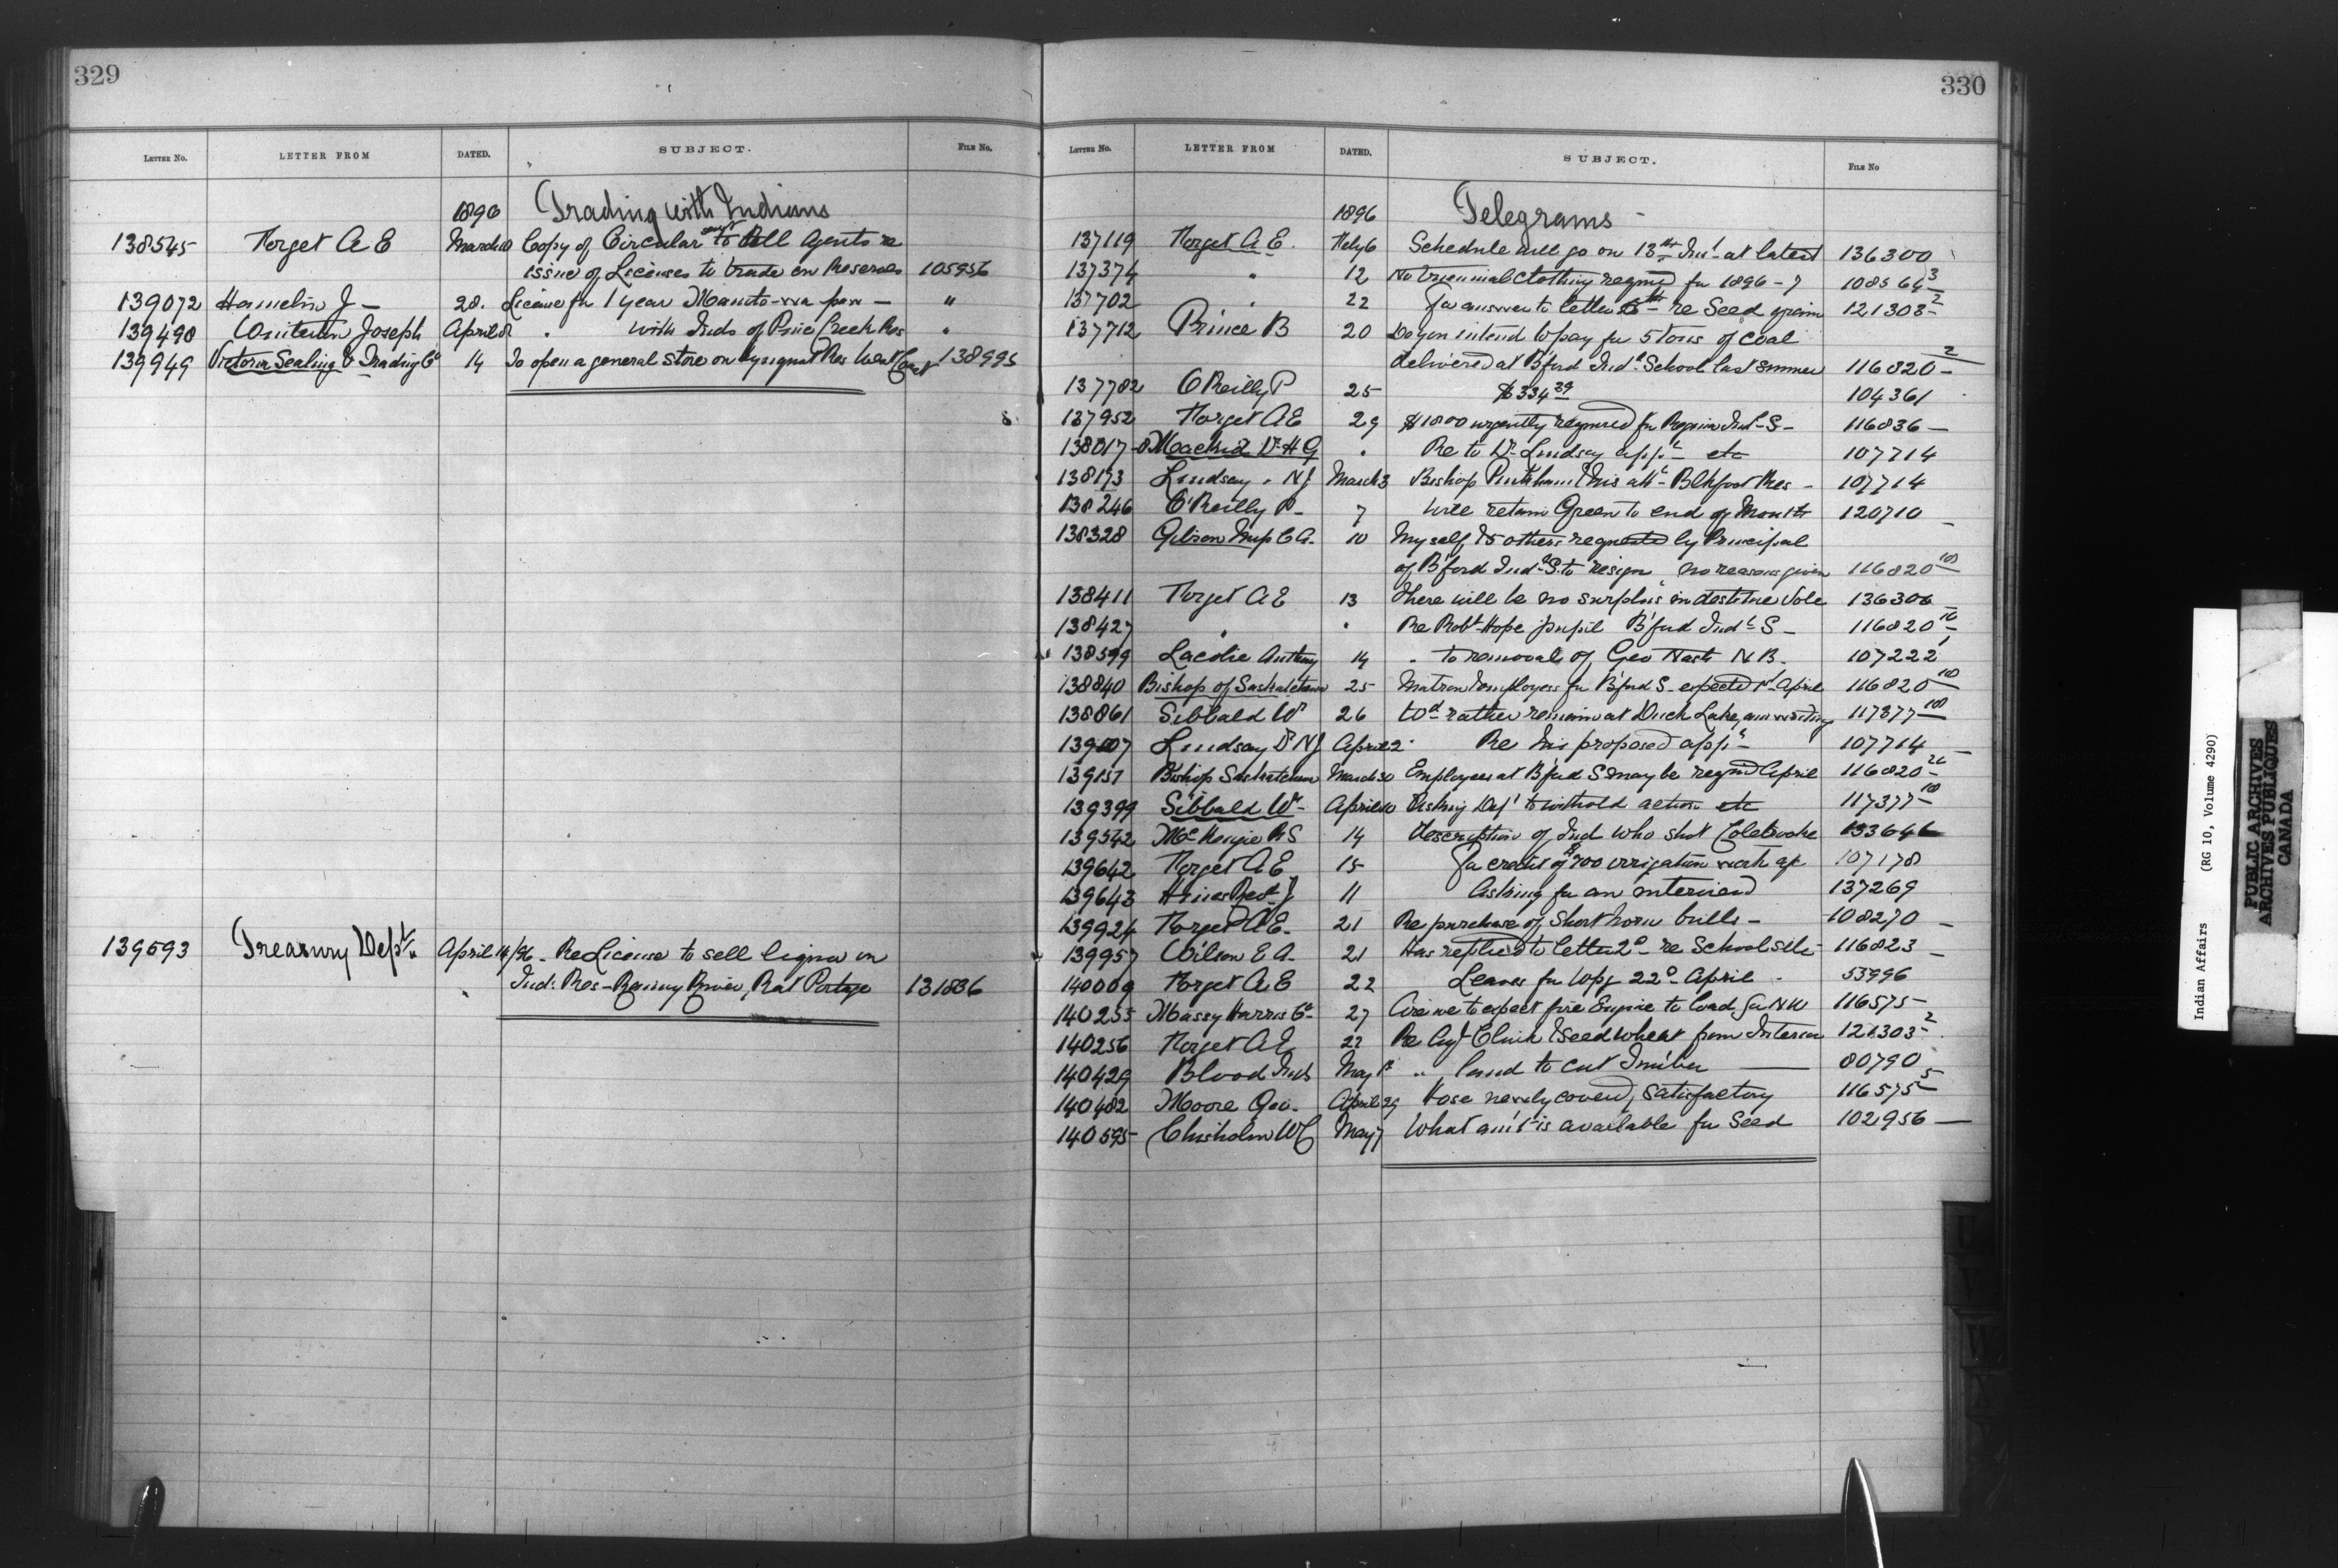 329
LETTER No. LETTER FROM DATED. SUBJECT. FILE No.
1896 Trading with Indians
138545 Forget A E March 10 Copy of Circular sent to all Agents re
issue of Licenses to trade on Reserves 105956
139072 Hamelin J - 28. License for 1 year -
139490 Joseph April 8 " with Inds of Pine Creek Res "
139949 Victoria Sealing & Trading Co 14 To open a general store on Res West Coast 138995
139593 Treasury Dept. April 14/96 - Re License to sell liquor on
Ind. Res - Rainy River, Rat Portage 131836
330
LETTER No. LETTER FROM DATED. SUBJECT. FILE No
1896 Telegrams -
137119 Forget A E. Feby 6 Schedule will go on 13th Inst at latest 136300
137374 " 12 No triennial Clothing required for 1896-7 108566 3
137702 " 22 For answer to letter 6th - re Seed grain 121303 2
137712 Prince B 20 Do you intend to pay for 5 tons of coal
delivered at B'ford Indl. School last summer 116820 2
137782 O'Reilly P 25 $334 39 104361
137952 Forget A E 29 $1800 urgently required for Regina Indl S - 116836 -
138017 Dr H G " Re to Dr Lindsay appt - etc 107714
138173 Lindsay. N J March 3 Bishop Pinkham & his att - Blkfoot Res - 107714
138246 O'Reilly P - 7 Will retain Green to end of Month 120710 -
138328 Gibson C A. 10 Myself & 5 others requested by Principal
of B'ford Indl S. to resign, no reasons given 116820 10
138411 Forget A E 13 There will be no surplus in destitute Vote 136306 -
138427 " " Re Robt Hope pupil B'ford Indl S - 116820 10
138599 Anthony 14 " to removal of Geo Nash N B. 107222 1
138840 Bishop of Saskatchewan 25 Matron & employees for B'ford S - expected 1st April 116820 10
138861 Sibbald W 26 Wd rather remain at Duck Lake, am writing 117377 10
139107 Lindsay Dr N J April 2 Re his proposed appt - 107714 -
139151 Bishop Saskatchewan March 30 Employees at B'ford S may be reqd April 116820
139399 Sibbald W - April 10 Asking Dept to withold action etc 117377 10
139542 McKenzie R S 14 Description of Ind who shot Colebrooke 133646
139642 Forget A E 15 For credit of $700 irrigation work 107178
139643 Hines Revd J 11 Asking for an interview 137269
139924 Forget A E. 21 Re purchase of Short horn bulls - 108270 -
139957 Wilson E A. 21 Has replied to letter 2d - re School site - 116823 -
140009 Forget A E 22 Leaves for Wpg 22d April - 53996
140255 Massy Harris Co - 27 Are we to expect fire Engine to load for N W 116575 -
140256 Forget A E 27 Re & seed wheat from Interior 121303 2
140429 Blood Inds May 1st " land to cut Timber 80790
140482 Moore Geo. April 29 Hose newly covered, satisfactory 116575 5
140595 Chisholm W C May 7 What amt is available for Seed 102956 -
Indian Affairs (RG 10, Volume 4290)
PUBLIC ARCHIVES
ARCHIVES PUBLIQUES
CANADA